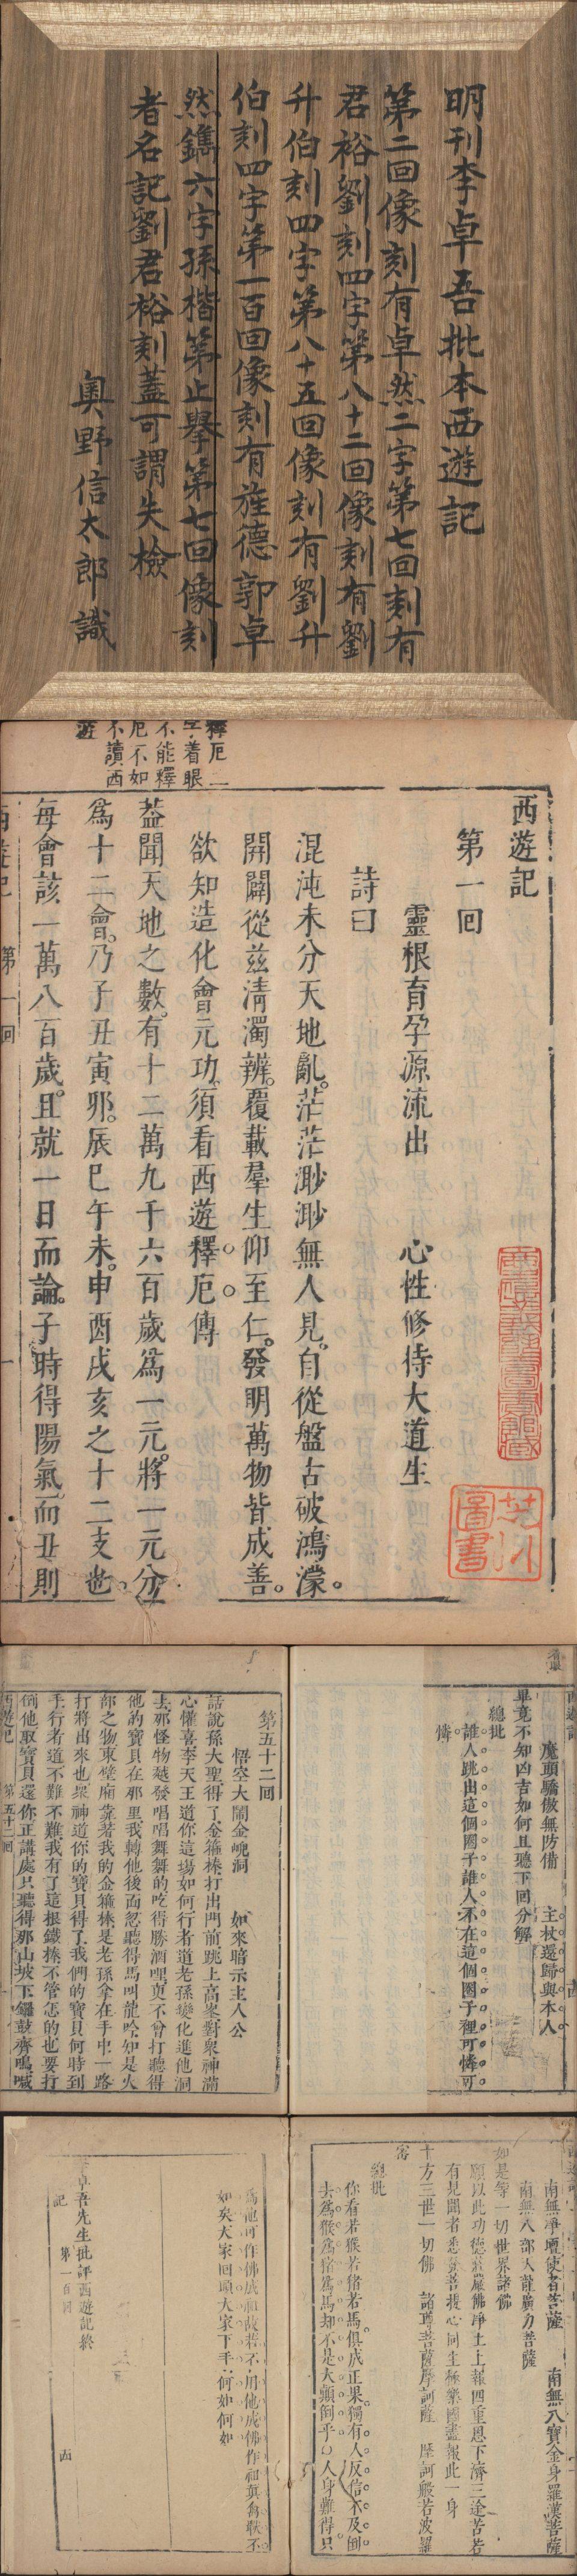 明刊李卓吾批本西遊記
第二回像刻有卓然二字第七回刻有
君裕劉刻四字第八十二回像刻有劉
升伯刻四字第八十五回像刻有劉升
伯刻四字第一百回像刻有旌德郭卓
然鐫六字孫楷第止舉第七回像刻
者名記劉君裕刻蓋可謂失檢
奥野信太郎識
釋厄二
字着眼
不能釋
厄不如
不讀西
遊
西遊記
第一回
靈根育孕源流出 心性修持大道生
詩曰
混沌未分天地亂。茫茫渺渺無人見。自從盤古破鴻濛。
開闢從兹清濁辨。覆載羣生仰至仁。發明萬物皆成善。
欲知造化會元功。須看西遊釋厄傳
葢聞天地之數。有十二萬九千六百歲爲一元。將一元分
爲十二會。乃子丑寅夘。辰巳午未。申酉戌亥之十二支也。
每會該一萬八百歲。且就一日而論。子時得陽氣。而丑則
西遊記 第一回 一
芝川圖書
魔頭驕傲無防備 主杖還歸與本人
畢竟不知凶吉如何且聽下回分解
總批
誰人跳出這個圈子誰人不在這個圈子裡可憐可
憐
第五十二回
悟空大鬧金㟅洞 如來暗示主人公
話說孫大聖得了金箍棒打出門前跳上高峯對衆神滿
心懽喜李天王道你這場如何行者道老孫變化進他洞
去那怪物越發唱唱舞舞的吃得勝酒哩更不曾打聽得
他的寶貝在那里我轉他後面忽聽得馬叫龍吟知是火
部之物東壁廂靠着我的金箍棒是老孫拿在手中一路
打將出來也衆神道你的寶貝得了我們的寶貝何時到
手行者道不難不難我有了這根鐵棒不管怎的也要打
倒他取寶貝還你正講處只聽得那山坡下鑼鼓齊鳴喊
西遊記 第五十二回
南無淨壇使者菩薩 南無八寶金身羅漢菩薩
南無八部天龍廣力菩薩
如是等一切世界諸佛
願以此功德莊嚴佛淨土上報四重恩下濟三途苦若
有見聞者悉發菩提心同生極樂國盡報此一身
十方三世一切佛 諸尊菩薩摩訶薩 摩訶般若波羅
密
總批
你看若猴若猪若馬俱成正果獨有人反信不及倒
去爲猴爲猪爲馬却不是大顛倒乎人身難得只
爲他可作佛成祖故若不用他成佛作祖與禽獸不
如矣大家回頭大家下手何如何如
李卓吾先生批評西遊記終
記 第一百回